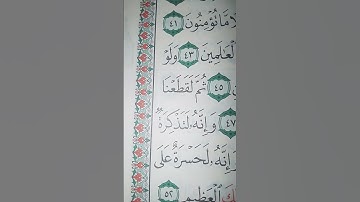 مَّا تُؤْمِنُونَ ٤١
لْعَالَمِينَ ٤٣ وَلَوْ
٤٥ ثُمَّ لَقَطَعْنَا
٤٧ وَإِنَّهُ لَتَذْكِرَةٌ
إِنَّهُ لَحَسْرَةٌ عَلَى
الْعَظِيمِ ٥٢